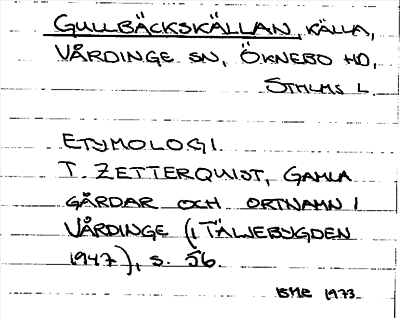 GULLBÄCKSKÄLLAN, KÄLLA,
VÅRDINGE SN, ÖKNEBO HD,
STHLMS L.
ETYMOLOGI
T. ZETTERQUIST, GAMLA
GÅRDAR OCH ORTNAMN I
VÅRDINGE (I TÄLJEBYGDEN
1947), S. 56.
1973